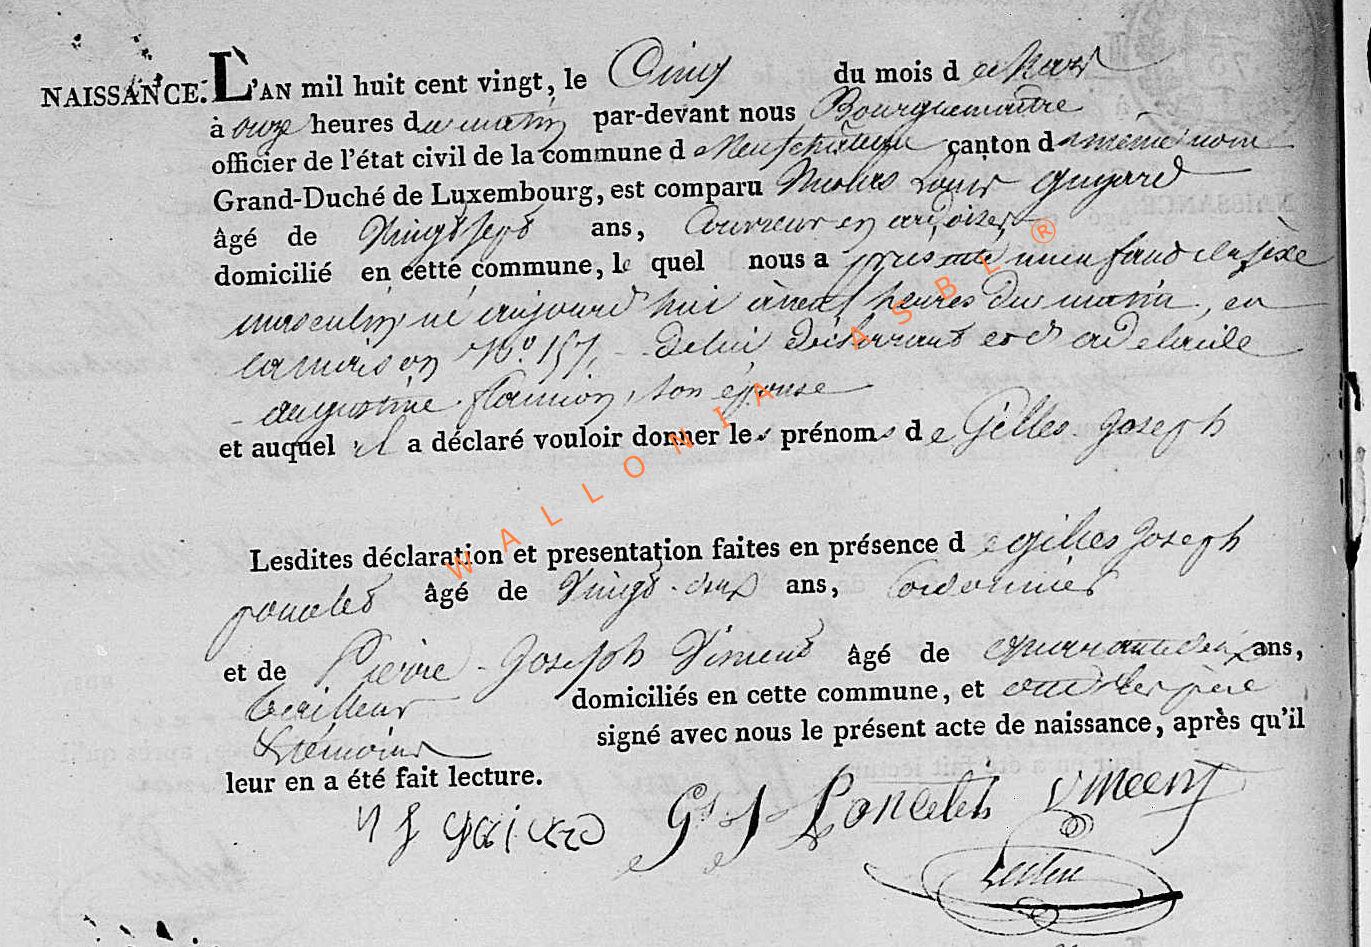 NAISSANCE. L'AN mil huit cent vingt, le Cinq du mois d e Mars
à onze heures du matin par-devant nous Bourguemaitre
officier de l'état civil de la commune d e Neufchâteau canton d u même nom
Grand-Duché de Luxembourg, est comparu Nicolas Louis Guyard
âgé de Vingt sept ans, Couvreur en ardoises
domicilié en cette commune, le quel nous a présenté un enfant du sexe
masculin né aujourd'hui à neuf heures du matin, en
la maison No. 157, de lui déclarant et d'adelaide
augustine, son épouse
et auquel il a déclaré vouloir donner les prénoms d e Gilles Joseph
Lesdites déclaration et presentation faites en présence d e gilles Joseph
poncelet âgé de Vingt-deux ans, Cordonnier
et de Pierre-Joseph âgé de quarante deux ans,
tailleur domiciliés en cette commune, et ont les père
& témoins signé avec nous le présent acte de naissance, après qu'il
leur en a été fait lecture.
G. J. Poncelet
WALLONIA ASBL ®